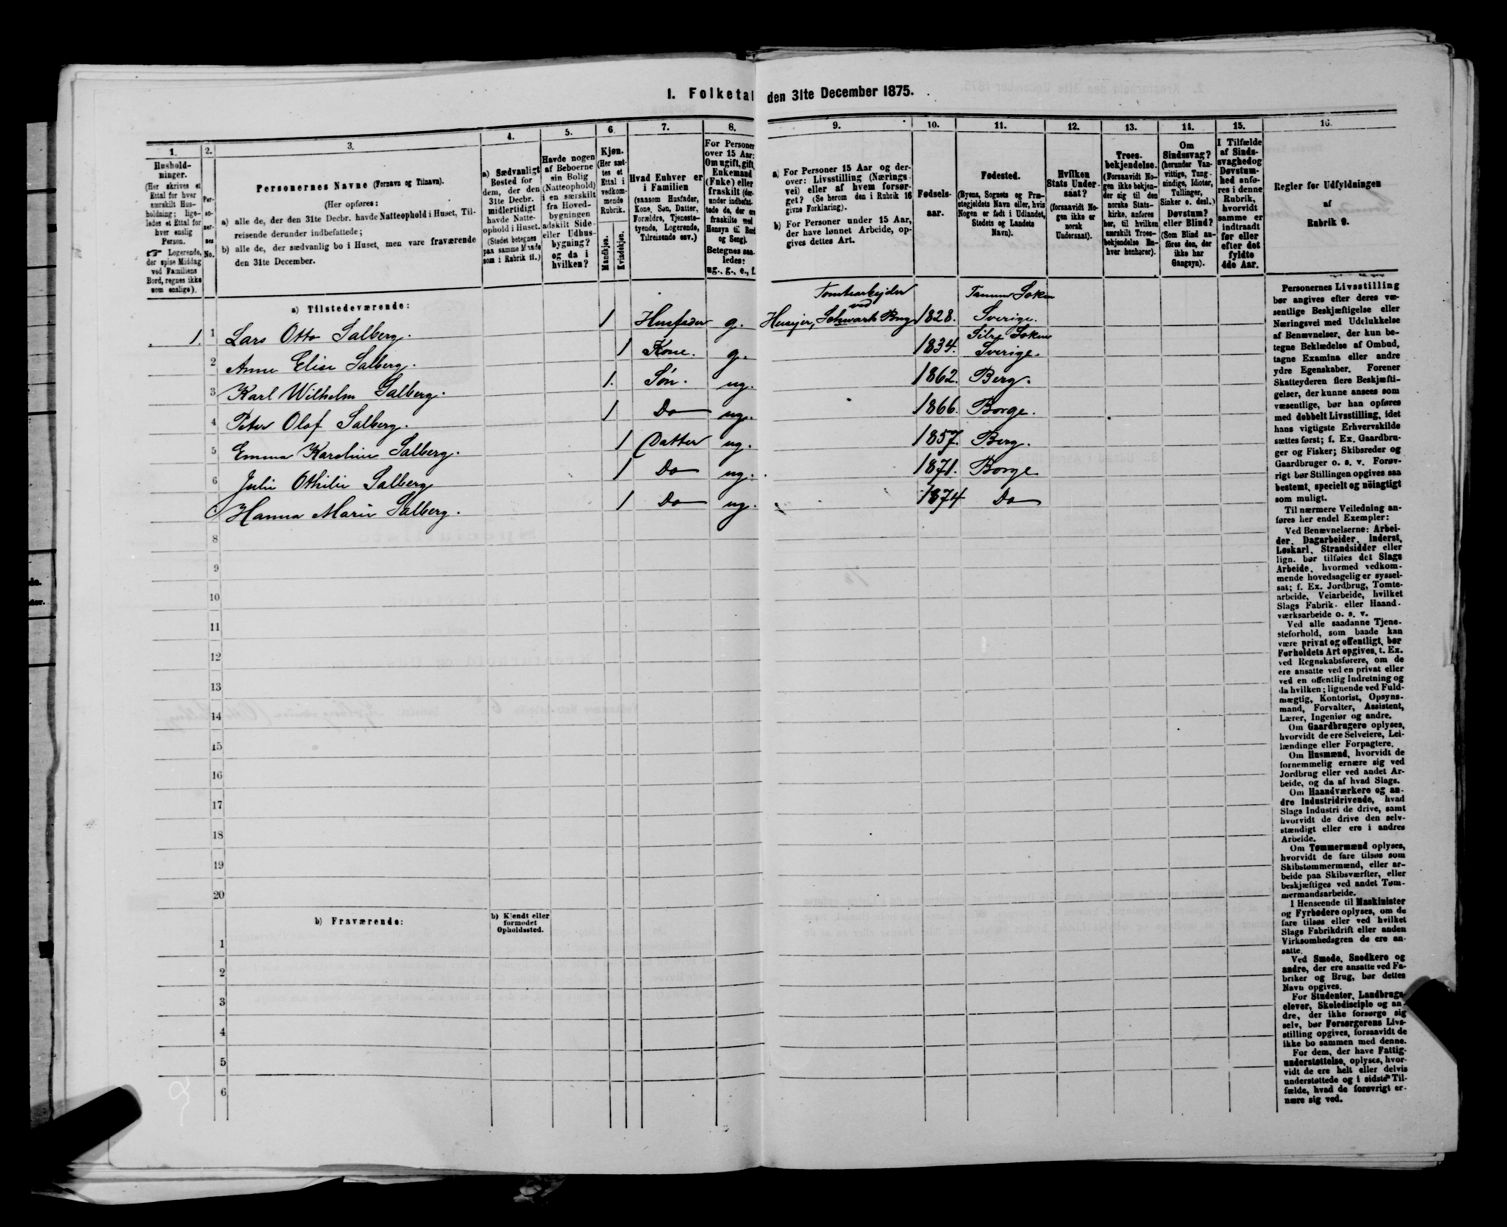 I. Folketal den 31te December 1875.
1.
Hushold-
ninger.
(Her skrives et
Ettal for hver
særskilt Hus-
holdning; lige-
ledes et Ettal for
hver enslig
Person.
☞ Logerende,
der spise Middag
ved Familiens
Bord, regnes ikke
som enslige).
2.
Per-
so-
ner-
nes
No.
3.
Personernes Navne (Fornavn og Tilnavn).
(Her opføres:
a) alle de, der den 31te Decbr. havde Natteophold i Huset, Til-
reisende derunder indbefattede;
b) alle de, der sædvanlig bo i Huset, men vare fraværende
den 31te December.
4.
a) Sædvanligt
Bosted for
dem, der den
31te Decbr.
midlertidigt
havde Natte-
ophold i Huset.
(Stedet betegnes
paa samme Maade
som i Rubrik 11.)
5.
Havde nogen
af Beboerne
sin Bolig
(Natteophold)
i en særskilt
fra Hoved-
bygningen
adskilt Side-
eller Udhus-
bygning?
og da i
hvilken?
6.
Kjøn.
(Her sæt-
tes et
Ettal i
vedkom-
mende
Rubrik.
Mandkjøn.
Kvindekjøn.
7.
Hvad Enhver er
i Familien
(saasom Husfader,
Kone, Søn, Datter,
Forældre, Tjeneste-
tyende, Logerende,
Tilreisende osv.)
8.
For Personer
over 15 Aar:
Om ugift, gift,
Enkemand
(Enke) eller
fraskilt (der-
under indbefat-
tede de, der ere
fraskilte med
Hensyn til Bord
og Seng).
Betegnes saa-
ledes:
ug., g., e., f.
9.
a) For Personer 15 Aar og der-
over: Livsstilling (Nærings-
vei) eller af hvem forsør-
get? (Se herom den i Rubrik 16
givne Forklaring).
b) For Personer under 15 Aar,
der have lønnet Arbeide, op-
gives dettes Art.
10.
Fødsels-
aar.
11.
Fødested.
(Byens, Sognets og Præ-
stegjeldets Navn eller, hvis
Nogen er født i Udlandet,
Stedets og Landets
Navn).
12.
Hvilken
Stats Under-
saat?
(forsaavidt No-
gen ikke er
norsk
Undersaat).
13.
Troes-
bekjendelse.
(Forsaavidt No-
gen ikke bekjen-
der sig til den
norske Stats-
kirke, anføres
her, til hvilken
særskilt Troes-
bekjendelse En-
hver henhører).
14.
Om
Sindssvag?
(herunder Van-
vittige, Tung-
sindige, Idioter,
Tullinger,
Sinker o. desl.)
Døvstum?
eller Blind?
(Som Blind an-
føres den, der
ikke har
Gangsyn).
15.
I Tilfælde
af Sinds-
svaghedog
Døvstum-
hed anfø-
res i denne
Rubrik,
hvorvidt
samme er
indtraadt
før eller
efter det
fyldte
4de Aar.
16.
Regler for Udfyldningen
af
Rubrik 9.
a) Tilstedeværende:
1 1 Lars Otto Salberg. 1 Husfader g. Huseier, Tomtearbejder ved Schwartz Brug 1828. Tanum Sokn Sverige.
2 Anne Elise Salberg. 1 Kone. g. 1834. Sokn Sverige.
3 Karl Wilhelm Salberg. 1. Søn. ug. 1862. Berg.
4 Peter Olaf Salberg. 1 Do ug. 1866. Borge.
5 Emma Karoline Salberg. 1 Datter ug. 1857. Berg.
6 Julie Othilie Salberg 1 Do ug. 1871. Borge
Hanna Marie Salberg. 1 Do ug. 1874 Do
8
9
10
11
12
13
14
15
16
17
18
19
20
b) Fraværende:
b) Kjendt eller
formodet
Opholdssted.
1
2
3
4
5
6
Personernes Livsstilling
bør angives efter deres væ-
sentlige Beskjæftigelse eller
Næringsvei med Udelukkelse
af Benævnelser, der kun be-
tegne Beklædelse af Ombud,
tagne Examina eller andre
ydre Egenskaber. Forener
Skatteyderen flere Beskjæfti-
gelser, der kunne ansees som
væsentlige, bør han opføres
med dobbelt Livsstilling, idet
hans vigtigste Erhvervskilde
sættes først; f. Ex. Gaardbru-
ger og Fisker; Skibsreder og
Gaardbruger o. s. v. Forøv-
rigt bør Stillingen opgives saa
bestemt, specielt og nøiagtigt
som muligt.
Til nærmere Veiledning an-
føres her endel Exempler:
Ved Benævnelserne: Arbei-
der, Dagarbeider, Inderst,
Løskarl, Strandsidder eller
lign. bør tilføies det Slags
Arbeide, hvormed vedkom-
mende hovedsagelig er syssel-
sat; f. Ex. Jordbrug, Tomte-
arbeide, Veiarbeide, hvilket
Slags Fabrik- eller Haand-
værksarbeide o. s. v.
Ved alle saadanne Tjene-
steforhold, som baade kan
være privat og offentligt, bør
Forholdets Art opgives, t. Ex.
ved Regnskabsførere, om de
ere ansatte ved en privat eller
ved en offentlig Indretning og
da hvilken; lignende ved Fuld-
mægtig, Kontorist, Opsyns-
mand, Forvalter, Assistent,
Lærer, Ingeniør og andre.
Om Gaardbrugere oplyses,
hvorvidt de ere Selveiere, Lei-
lændinge eller Forpagtere.
Om Husmænd, hvorvidt de
fornemmelig ernære sig ved
Jordbrug eller ved andet Ar-
beide, og da af hvad Slags.
Om Haandværkere og an-
dre Industridrivende, hvad
Slags Industri de drive, samt
hvorvidt de drive den selv-
stændigt eller ere i andres
Arbeide.
Om Tømmermænd oplyses,
hvorvidt de fare tilsøs som
Skibstømmermænd, eller ar-
beide paa Skibsværfter, eller
beskjæftiges ved andet Tøm-
mermandsarbeide.
I Henseende til Maskinister
og Fyrbødere oplyses, om de
fare tilsøs eller ved hvilket
Slags Fabrikdrift eller anden
Virksomhedsgren de ere an-
satte.
Ved Smede, Snedkere og
andre, der ere ansatte ved Fa-
briker og Brug, bør dettes
Navn opgives.
For Studenter, Landbrugs-
elever, Skoledisciple og an-
dre, der ikke forsørge sig
selv, bør Forsørgerens Livs-
stilling opgives, forsaavidt de
ikke bo sammen med denne.
For dem, der have Fattig-
understøttelse, oplyses, hvor-
vidt de ere helt eller delvis
understøttede og i sidste Til-
fælde, hvad de forøvrigt er-
nære sig ved.